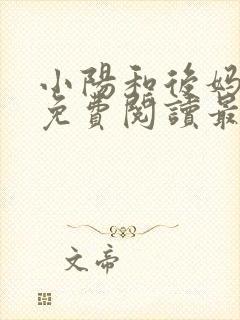 小陽和後媽
免費閱讀最
文帝